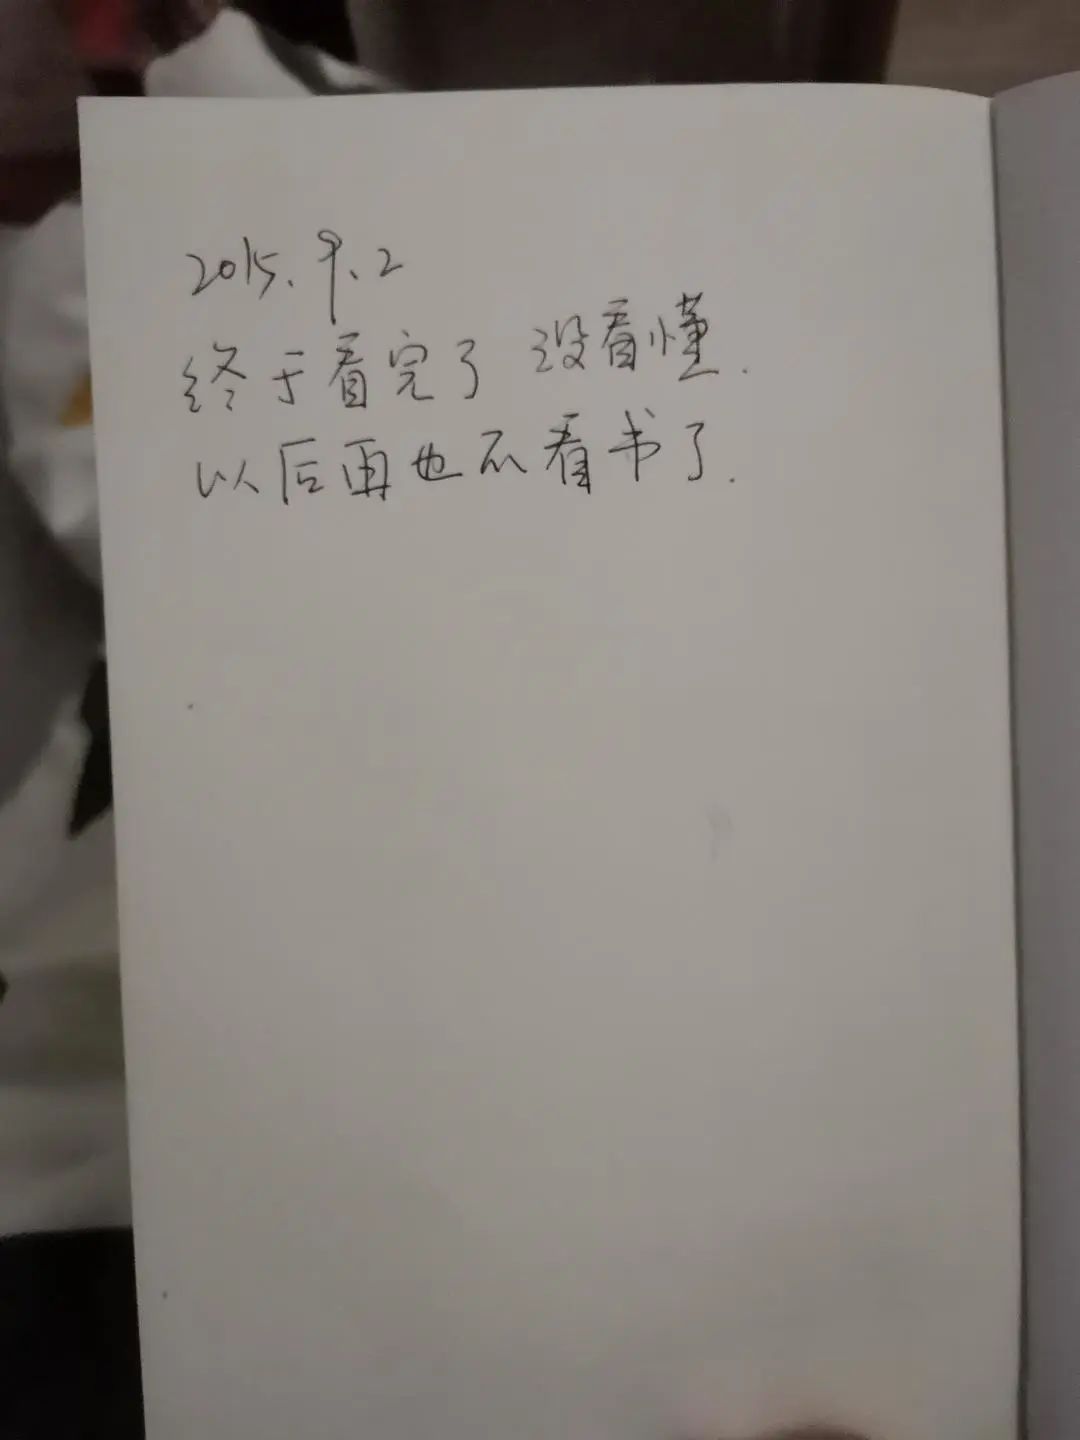 2015.9.2
终于看完了 没看懂.
以后再也不看书了.